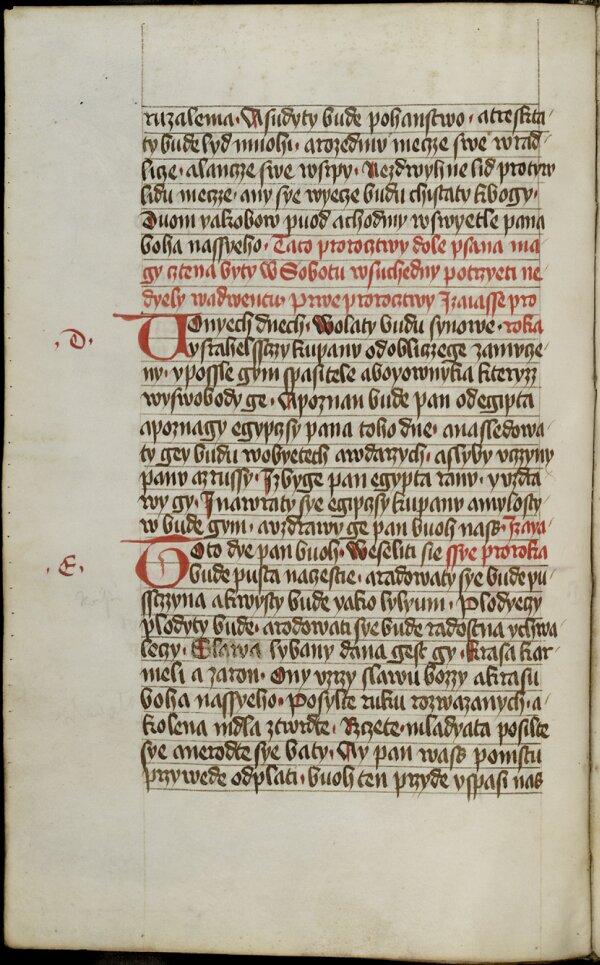 ruzalema. A sudyty bude pohanstwo. atreskta/
ty bude lyd mnohi. arozedmu mecze swe wrad/
licze. alancze swe wsrpy. Nezdwyhne lid protyw
lidu mecze. any sye wyecze budu chistaty kbogy.
Duom yakobow puod achodmy wswyetle pana
boha nassyeho. Tato proroctwy dole psana ma/
gy cztena byty W Sobotu wsuchedny potrzyeti ne/
dyely wadwentu. Prwe proroctwy Izaiasse pro
D.
W Onyech dnech. Wolaty budu synowe. roka
yzrahelssczy kupanu odobliczege zamucze/
ny. yposle gym spasitele aboyownyka kteryzz
wyswobody ge. Apoznan bude pan odegipta
apoznagy egypczy pana toho dne. anasledowa/
ty gey budu wobyetech awdarzych. aslyby uczyny
panu azrussy. Izbyge pan egypta ranu. yuzdra
wy gy. Inawraty sye egipczy kupanu amylosty/
w bude gym. auzdrawy ge pan buoh nass. Izaya/
E.
Toto dye pan buoh. Weseliti sie ssye proroka
bude pusta naczestie. aradowaty sye bude pu/
ssczyna akwysty bude yako lylyum. Plodyeczy
plodyty bude. arodowati sye bude radostna ychwa
leczy. Slawa lybany dana gest gy. Krasa kar
meli a zaron. Ony uzrzy slawu bozzy akrasu
boha nassyeho. Posylte ruku rozwazanych. a/
kolena mdla ztwrdte. Rczete. mladyata posilte
sye anerodte sye baty. Ay pan wass pomstu
przywede odplati. buoh ten przyde yspasi nas